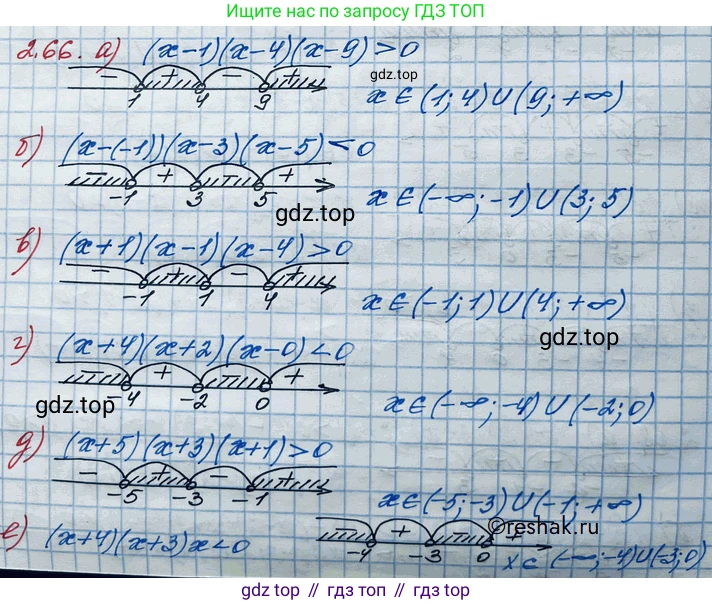 Ищите нас по запросу ГДЗ ТОП
2.66. а) (x-1)(x-4)(x-9)>0
- + - +
gdz.top
1 4 9
x∈(1;4)∪(9;+∞)
б) (x-(-1))(x-3)(x-5)<0
- + - +
-1 3 5
x∈(-∞;-1)∪(3;5)
gdz.top
в) (x+1)(x-1)(x-4)>0
- + - +
-1 1 4
x∈(-1;1)∪(4;+∞)
gdz.top
г) (x+4)(x+2)(x-0)<0
- + - +
-4 -2 0
x∈(-∞;-4)∪(-2;0)
gdz.top
д) (x+5)(x+3)(x+1)>0
- + - +
-5 -3 -1
x∈(-5;-3)∪(-1;+∞)
©reshak.ru
е) (x+4)(x+3)x<0
- + - +
-4 -3 0
x∈(-∞;-4)∪(-3;0)
gdz top // гдз топ // gdz.top